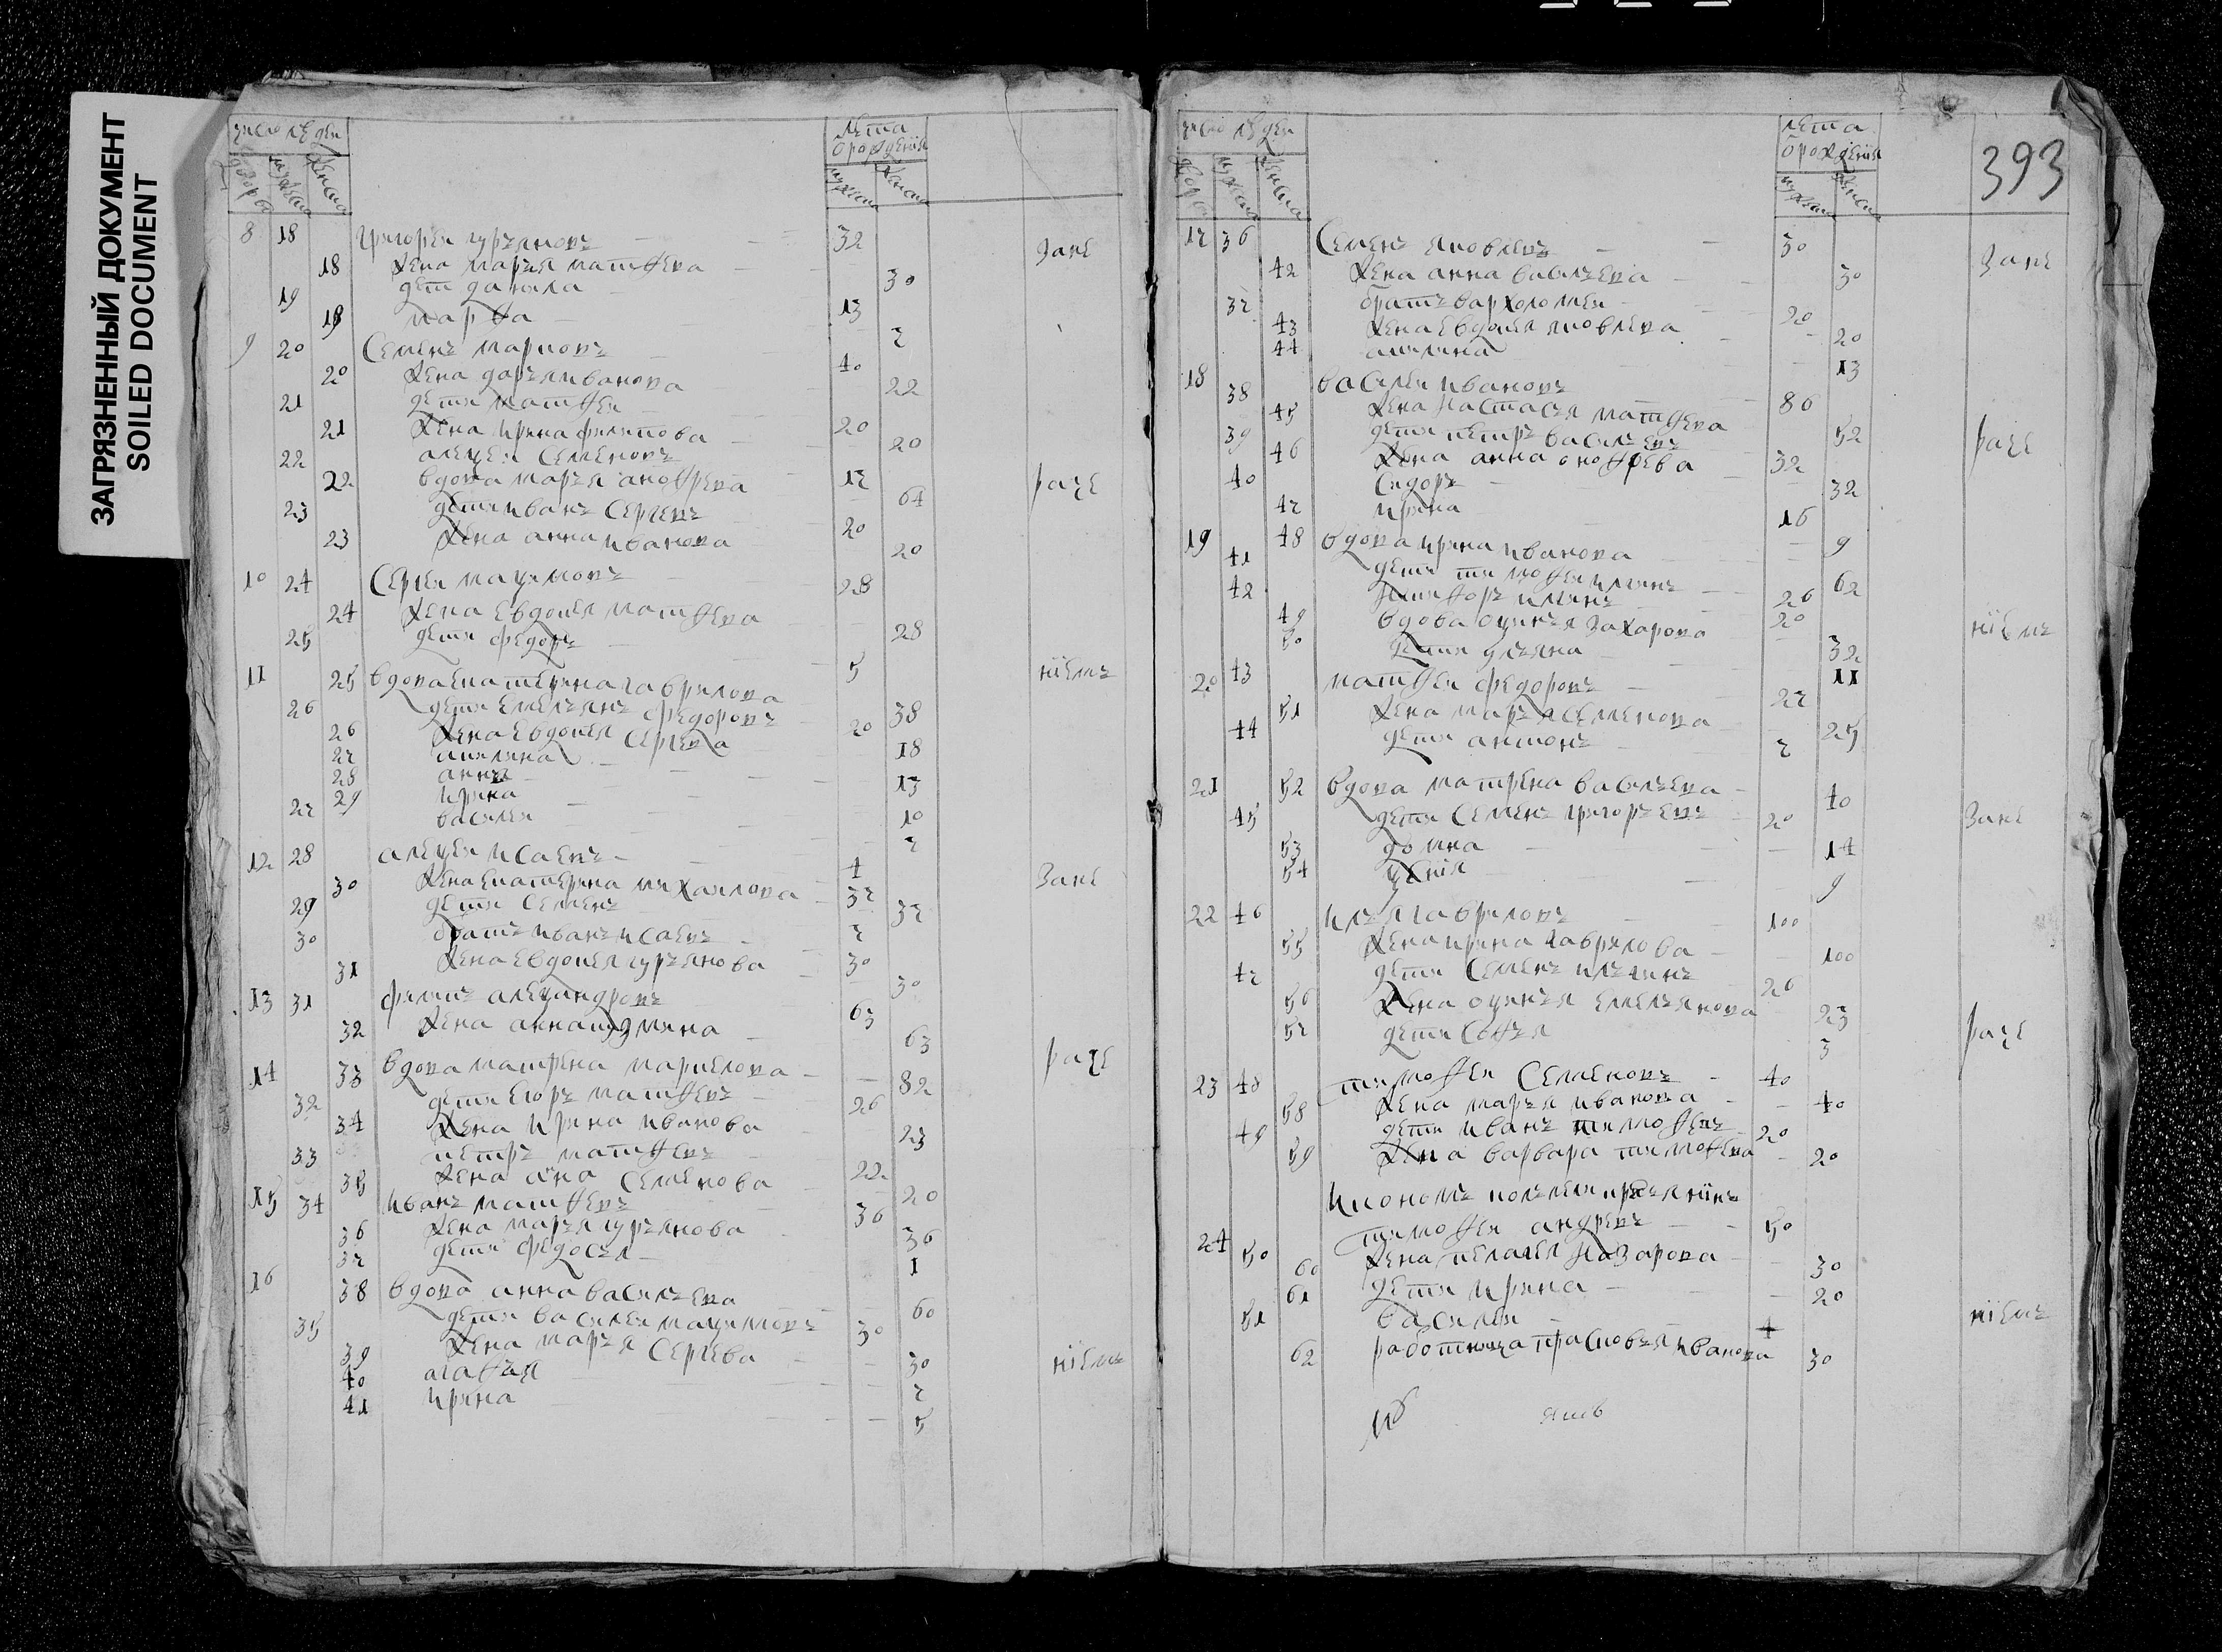 ЗАГРЯЗНЕННЫЙ ДОКУМЕНТ
SOILED DOCUMENT
число людеи
лета
ѿрождения
дворы
мужеска
женска
мужеска
женска
8 18 григореи гурьяновъ 32
18 жена марья матфеева 30
19 дети данила 13
19 марфа 7
9 20 Семенъ марковъ 40
20 жена дарья иванова 22
21 дети матфеи 20
21 жена ирина филипова 20
22 алеѯеи Семеновъ 17
22 вдова марья анофрева 64
23 дети иванъ Сергевъ 20
23 жена анна иванова 20
10 24 Сергеи маѯимовъ 28
24 жена Евдокея матфева 28
25 дети федоръ 5
11 25 вдова Екатерина гаврилова 38
26 дети Емельянъ федоровъ 20
26 жена Евдокея Сергева 18
27 акилина 13
28 анна 10
29 ирина 7
27 василеи 4
12 28 алеѯеи исаевъ 37
30 жена Екатерина михаилова 37
29 дети Семенъ 7
30 братъ иванъ исаевъ 30
31 жена Евдокея гурьянова 30
13 31 филипъ алеѯандровъ 63
32 жена анна 63
14 33 вдова матрена маркелова 82
32 дети Егоръ матфевъ 26
34 жена ирина иванова 23
33 петръ матфевъ 22
35 жена анна Семенова 20
15 34 иванъ матфевъ 36
36 жена марья гурьянова 36
37 дети федосья 1
16 38 вдова анна васильева 60
35 дети василеи маѯимовъ 30
39 жена марья Сергева 30
40 агафья 7
41 ирина 5
число людеи
лета
ѿрождения
393
дворы
мужеска
женска
мужеска
женска
17 36 Семенъ яковлевъ 30
42 жена анна васильева 30
37 братъ вархоломеи 20
43 жена Евдокея яковлева 20
44 акилина 13
18 38 василеи ивановъ 80
45 жена настасья матфева 52
39 дети петръ васильевъ 32
46 жена анна онофрева 32
40 Сидоръ 16
47 ирина 9
19 48 вдова ирина иванова 62
41 дети тимофеи ильинъ 26
42 ильинъ 20
49 вдова оѯинья захарова 32
50 дети ульяна 11
20 43 матфеи федоровъ 27
51 жена марья Семенова 25
44 дети антонъ 7
21 52 вдова матрена васильева 40
45 дети Семенъ григорьевъ 20
53 домна 14
54 9
22 46 илья гавриловъ 100
55 жена ирина гаврилова 100
47 дети Семенъ ильинъ 26
56 жена оѯинья Емельянова 23
57 дети Софья 3
23 48 тимофеи Семеновъ 40
58 жена марья иванова 40
49 дети иванъ тимофевъ 20
59 жена варвара тимофева 20
24 50 тимофеи андревъ 50
60 жена пелагея назарова 30
61 дети ирина 20
51 василеи 4
62 работница прасковья иванова 30